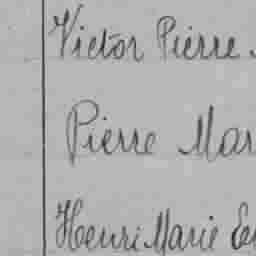 Victor Pierre
Pierre Mar
Henri Marie